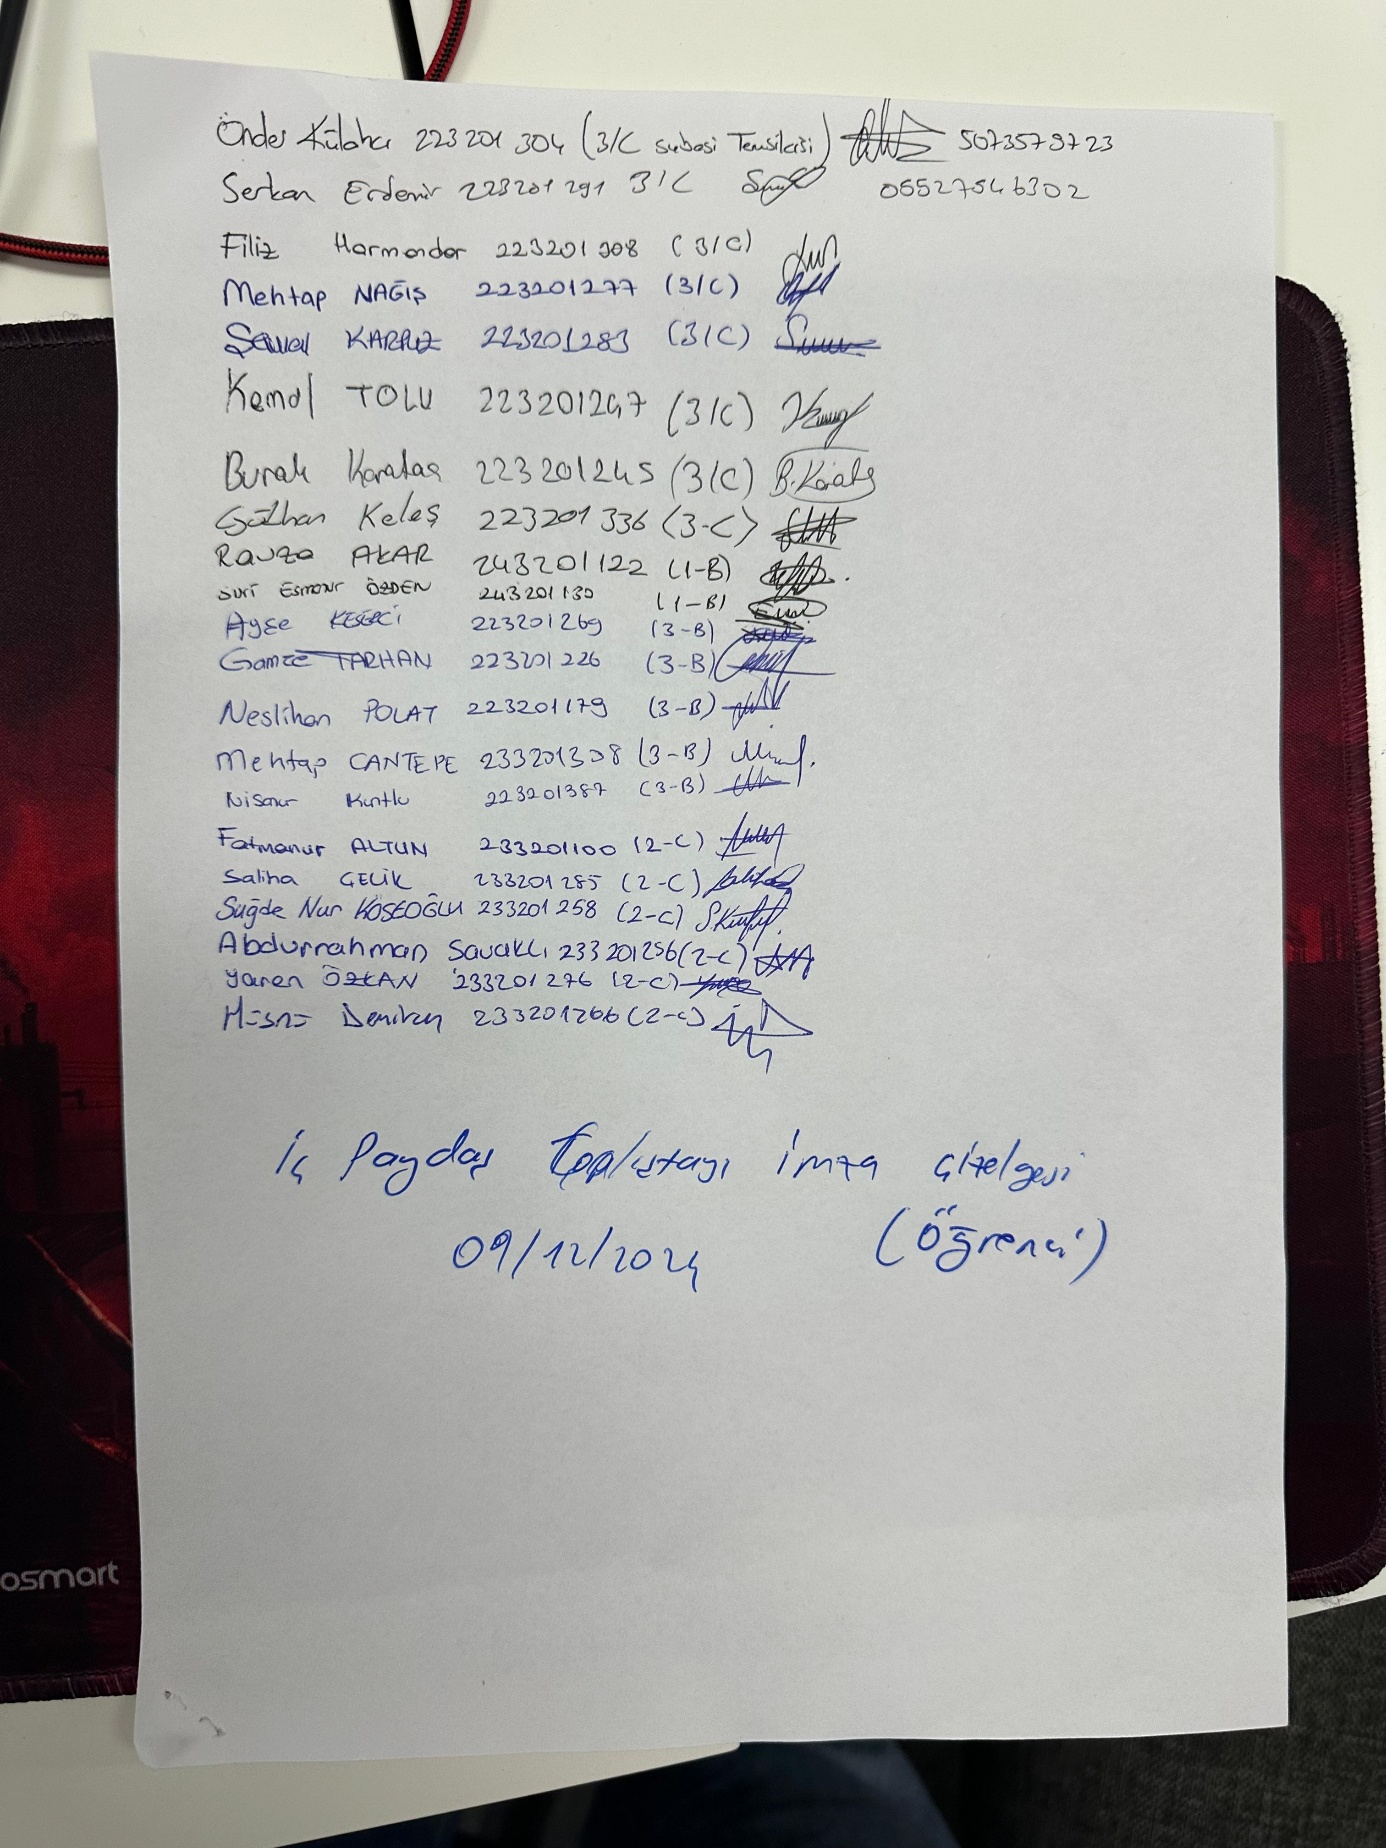 Önder Külahcı 223201304 (3/C şubesi Temsilcisi) 5073579723
Serkan Erdemir 223201291 3/C 05527546302
Filiz Harmandar 223201308 (3/C)
Mehtap NAĞIŞ 223201277 (3/C)
KARPUZ 223201283 (3/C)
Kemal TOLU 223201247 (3/C)
Burak Karataş 223201245 (3/C) B.Karataş
Gülhan Keleş 223201336 (3-C)
Ravza AKAR 243201122 (1-B)
Esmanur ÖZDEN 243201130 (1-B)
Ayşe KESERCİ 223201269 (3-B)
Gamze TARHAN 223201226 (3-B)
Neslihan POLAT 223201179 (3-B)
Mehtap CANTEPE 233201308 (3-B)
Nisanur Kuntlu 223201387 (3-B)
Fatmanur ALTUN 233201100 (2-C)
Saliha ÇELİK 233201285 (2-C)
Suğde Nur KÖSEOĞLU 233201258 (2-C)
Abdurrahman Savaklı 233201256 (2-C)
Yaren ÖZKAN 233201276 (2-C)
Hüsnü 233201266 (2-C)
İç Paydaş Toplantayı İmza Çizelgesi
09/12/2024 (Öğrenci)
osmart